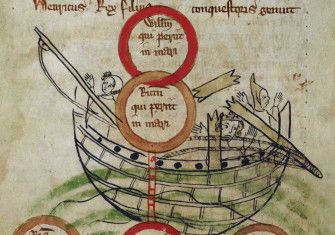 Henricus Rex filius conquestoris genuit
Willm
qui periit
in mari
Ricus
qui periit
in mari